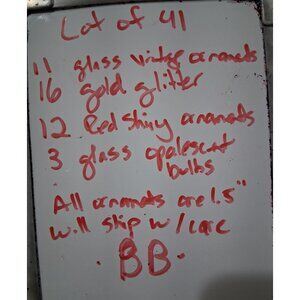 Lot of 41
11 glass vintage ornamets
16 gold glitter
12 Red Shiny ornamets
3 glass opalescent
bulbs
All ornamets are 1.5"
Will ship w/ care
· BB ·